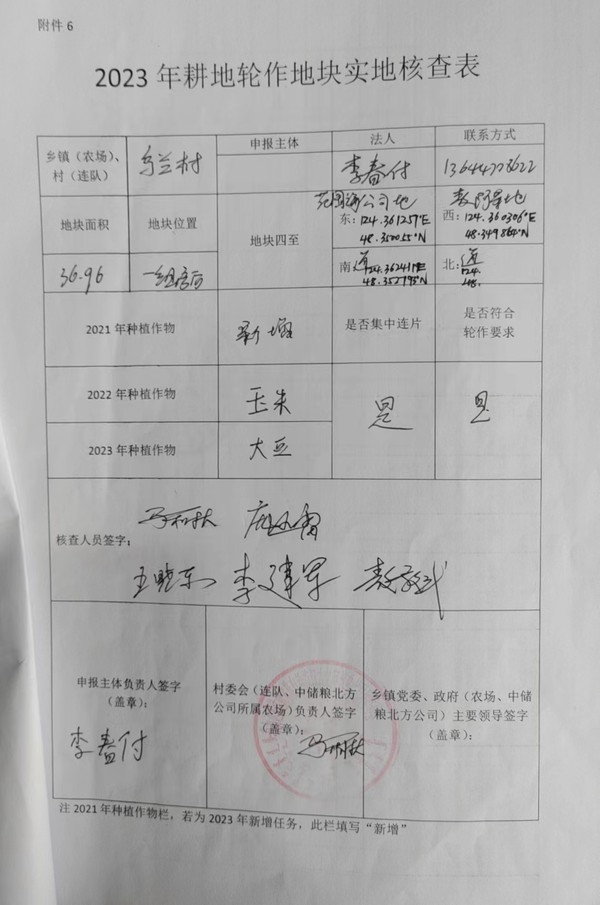 附件 6
2023 年耕地轮作地块实地核查表
乡镇（农场）、
村（连队）
乌兰村
申报主体
法人
联系方式
李春付
地块面积
地块位置
地块四至
公司地
东：124.361259°E
48.350055°N
西：124.360306°E
48.349864°N
36.96
南：道
124.362411°E
48.352795°N
北：道
124.
48.
2021 年种植作物
新增
是否集中连片
是否符合
轮作要求
2022 年种植作物
玉米
是
是
2023 年种植作物
大豆
核查人员签字：
王晓东 李建军
申报主体负责人签字
（盖章）：
李春付
村委会（连队、中储粮北方
公司所属农场）负责人签字
（盖章）：
乡镇党委、政府（农场、中储
粮北方公司）主要领导签字
（盖章）：
注 2021 年种植作物栏，若为 2023 年新增任务，此栏填写“新增”